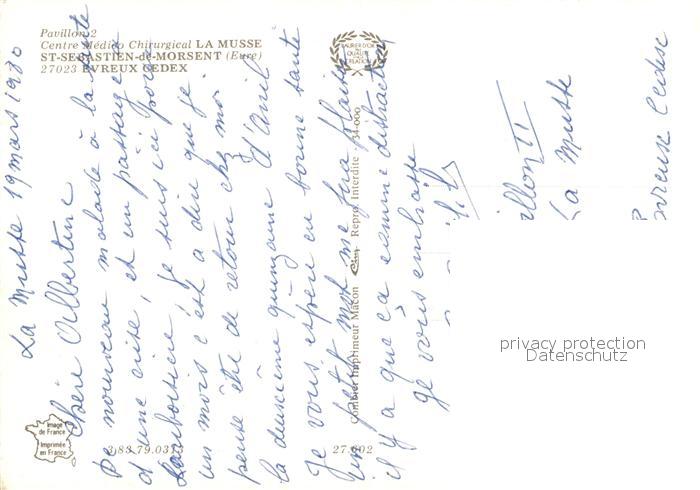 Pavillon 2
Centre Médico Chirurgical LA MUSSE
ST-SEBASTIEN-de-MORSENT (Eure)
27023 EVREUX CEDEX
La Musse 19 mars 1980
Chère Albertine
De nouveau malade à la suite
d'une crise, et un passage à
Lariboisière, je suis ici pour
un mois c'est à dire que je
pense être de retour chez moi
la deuxième quinzaine d'Avril
Je vous espère en bonne santé
un petit mot me fera plaisir
il y a que ça comme distraction
Je vous embrasse
illon II
La Musse
Evreux Cedex
LAURIER D'OR
DE LA
QUALITÉ
CRÉATION
Combier Imprimeur Macon
Cim
Repro. Interdite
34-000
Image
de France
Imprimée
en France
2.83.79.0313
27.602
privacy protection
Datenschutz